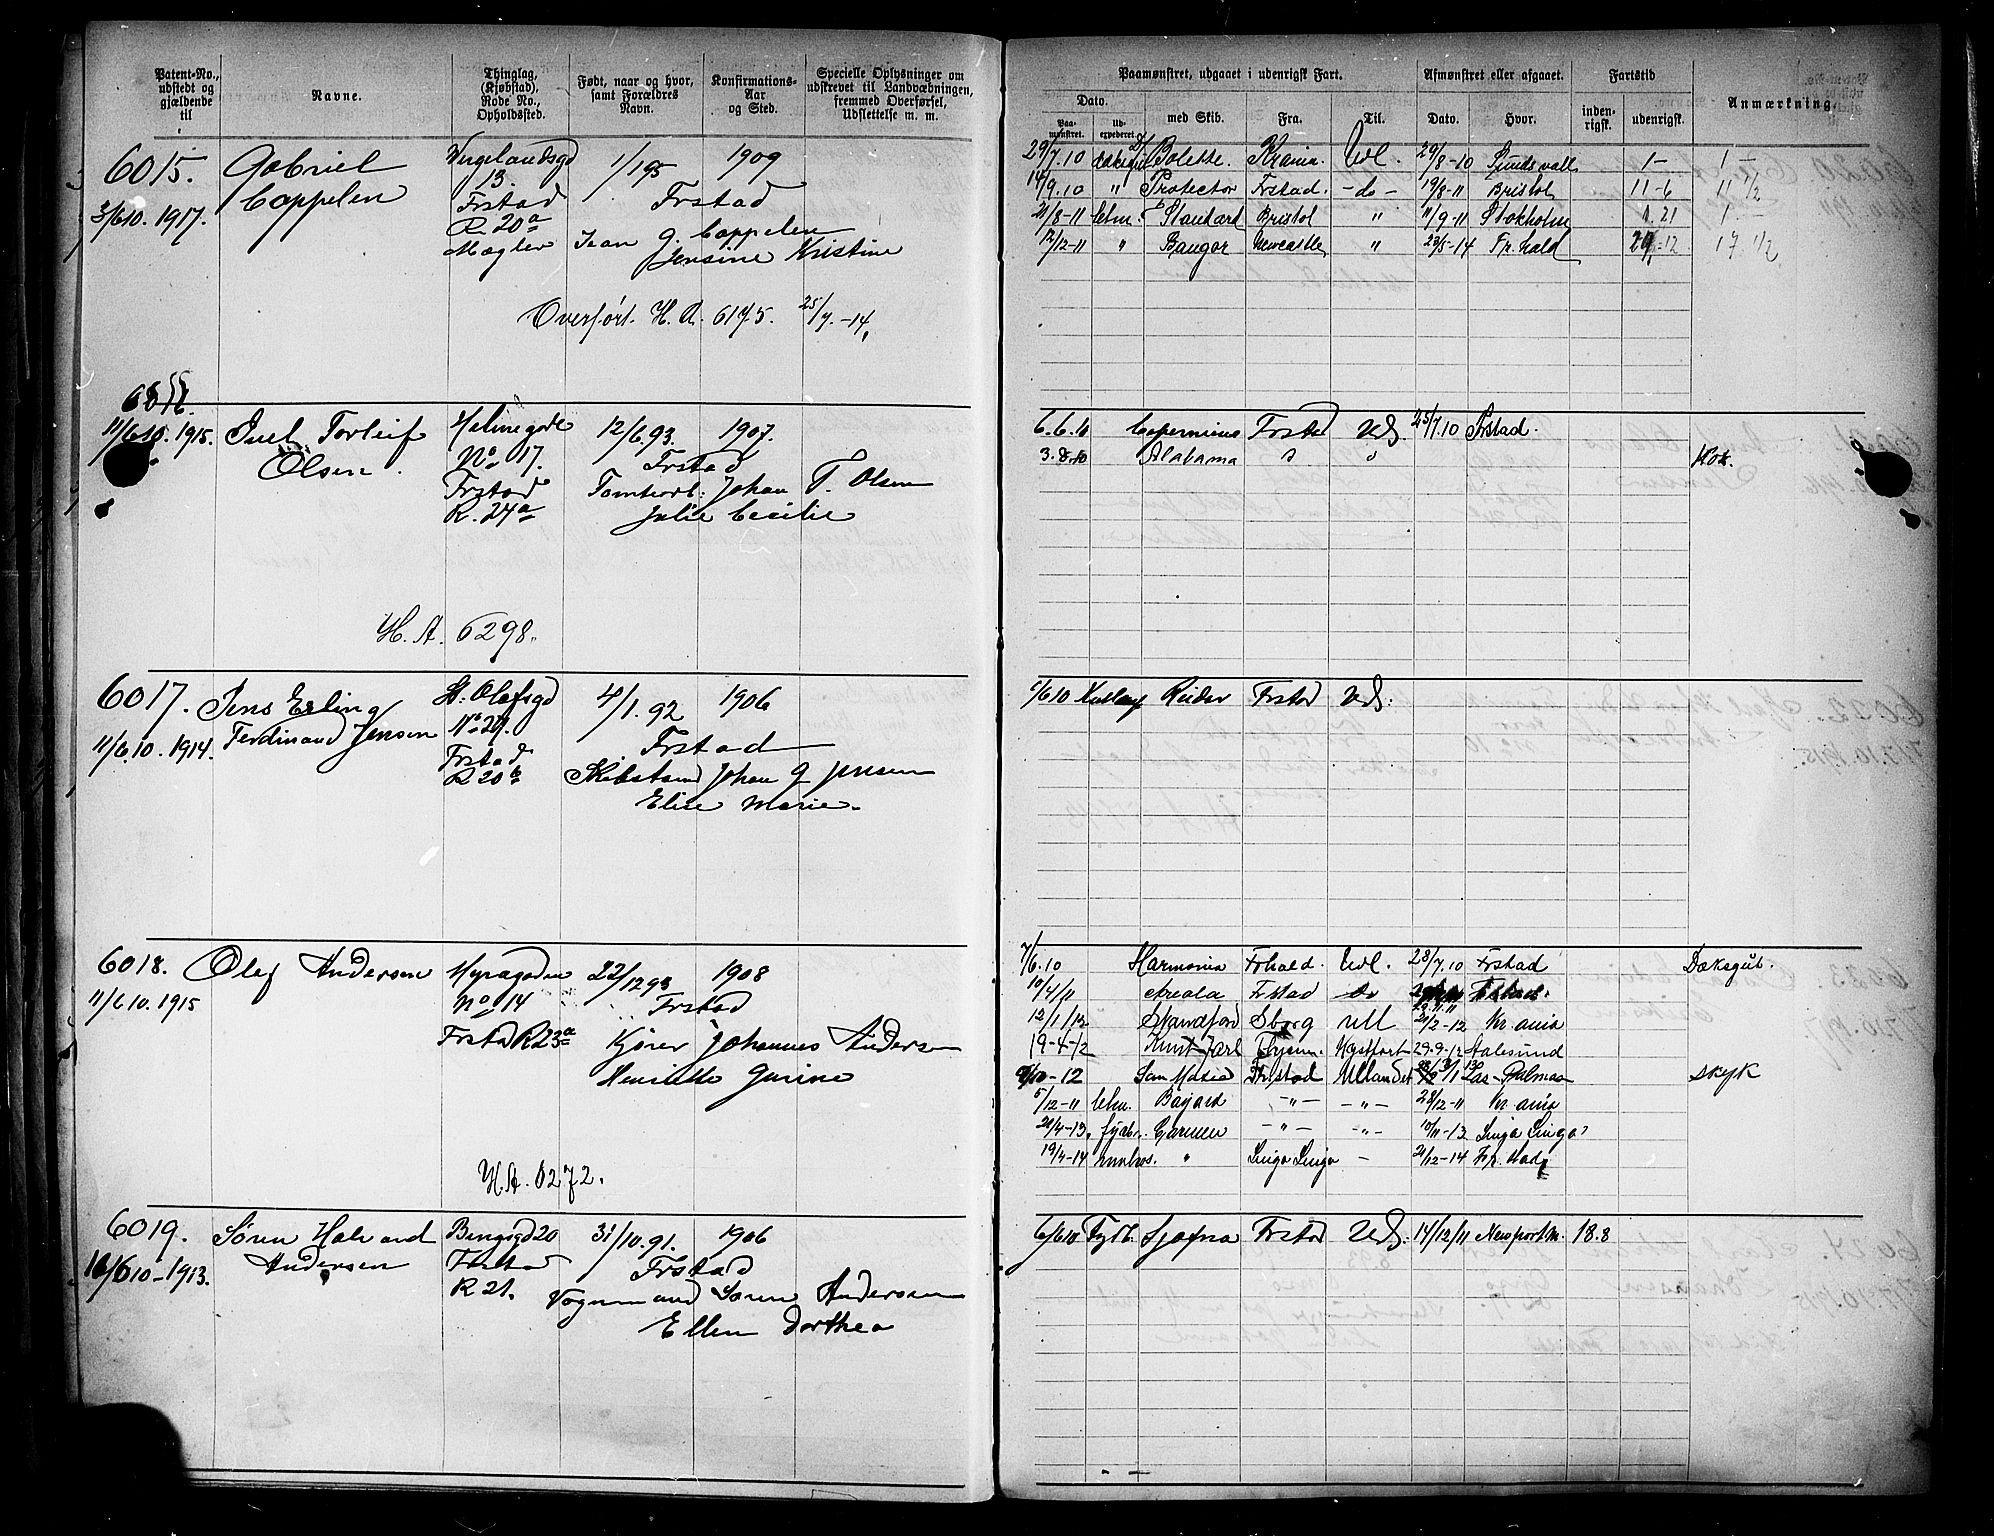 Patent-No., udstedt og gjældende til
Navne.
Thinglag, (Kjøbstad), Rode No., Opholdssted.
Født, naar og hvor, samt Forældres Navn.
Konfirmations-Aar og Sted.
Specielle Oplysninger om udskrevet til Landværbningen, fremmed Overførsel, Udslettelse m. m.
Paamønstret, udgaaet i udenrigsk Fart.
Afmønstret eller afgaaet.
Fartstid
Anmærkning.
Dato.
Paa-mønstret.
Ud-expederet
med Skib.
Fra.
Til.
Dato.
Hvor.
inden-rigsk.
udenrigsk.
6015. Gabriel Cappelen
3/6 10. 1917.
Wergelandsgd 13. Frstad R. 20a
1/1 95 1909
Frstad
Mægler Isan G. Cappelen
Jensine Kristine
Overført. H. A. 6175. 25/7.-14.
29/7.10 Bolette. Krania. Udl. 29/8-10 Sundsvall 1- 1-
14/9.10 " Protector Frstad. -do- 19/8-11 Bristol 11-6 11 1/2
21/8-11 Standard Bristol " 11/9-11 Stokholm 21 1-
12/12-11 " Bangor Newcastle " 23/5-14 Fr.hald 29-12 17 1/2
6016.
11/6 10. 1915. Juel Torleif Olsen.
No 17. Frstad R. 24a
12/6.93. 1907.
Frstad
Tomtearb: Johan T. Olsen
Julie Cecilie
H. A. 6298.
6.6.10 Copernicus Frstad Uds. 25/7.10 Frstad.
3.8.10 Alabama " " Kok.
6017. Jens Erling Ferdinand Jensen
11/6.10. 1914.
St. Olafsgd No 29. Frstad R. 20b
4/1.92 1906
Frstad
Skibstømd Johan G Jensen
Elise Marie.
6/6 10 Reidar Frstad Uds.
6018. Olaf Andersen
11/6 10. 1915
Myragaden No 14 Frstad R 23a
22/12 93 1908
Frstad
Kjører Johannes Andersen
Henriette Gurine
H. A. 6272.
7/6.10 Harmonia Frhald. Udl. 28/7.10 Frstad Dæksgut.
10/4/11 Areala Frstad do
12/1/12 Skandford Sborg Utl 21/2-12 Kr.ania
19-4-12 Knut Jarl 29-9-12 Aalesund
San Mateo Fr.stad Utlandet Las-Palmas
5/12-11 Bayard -"- -"- 28/12-11 Kr.ania
21/4-13. fyrb. Carmen -"- -"- 10/11-13 Singa Singa
19/4-14 " Singa Singa - 21/12-14 Fr.stad
6019. Søren Halvard Andersen
11/6 10-1913.
Bingsgd 20 Frstad R 21.
31/10.91. 1906
Frstad
Vognmand Søren Andersen
Ellen Dorthea
6/6 10 Fyrb. Sjofna Frstad Uds. 14/12/11 Newport M. 18.8